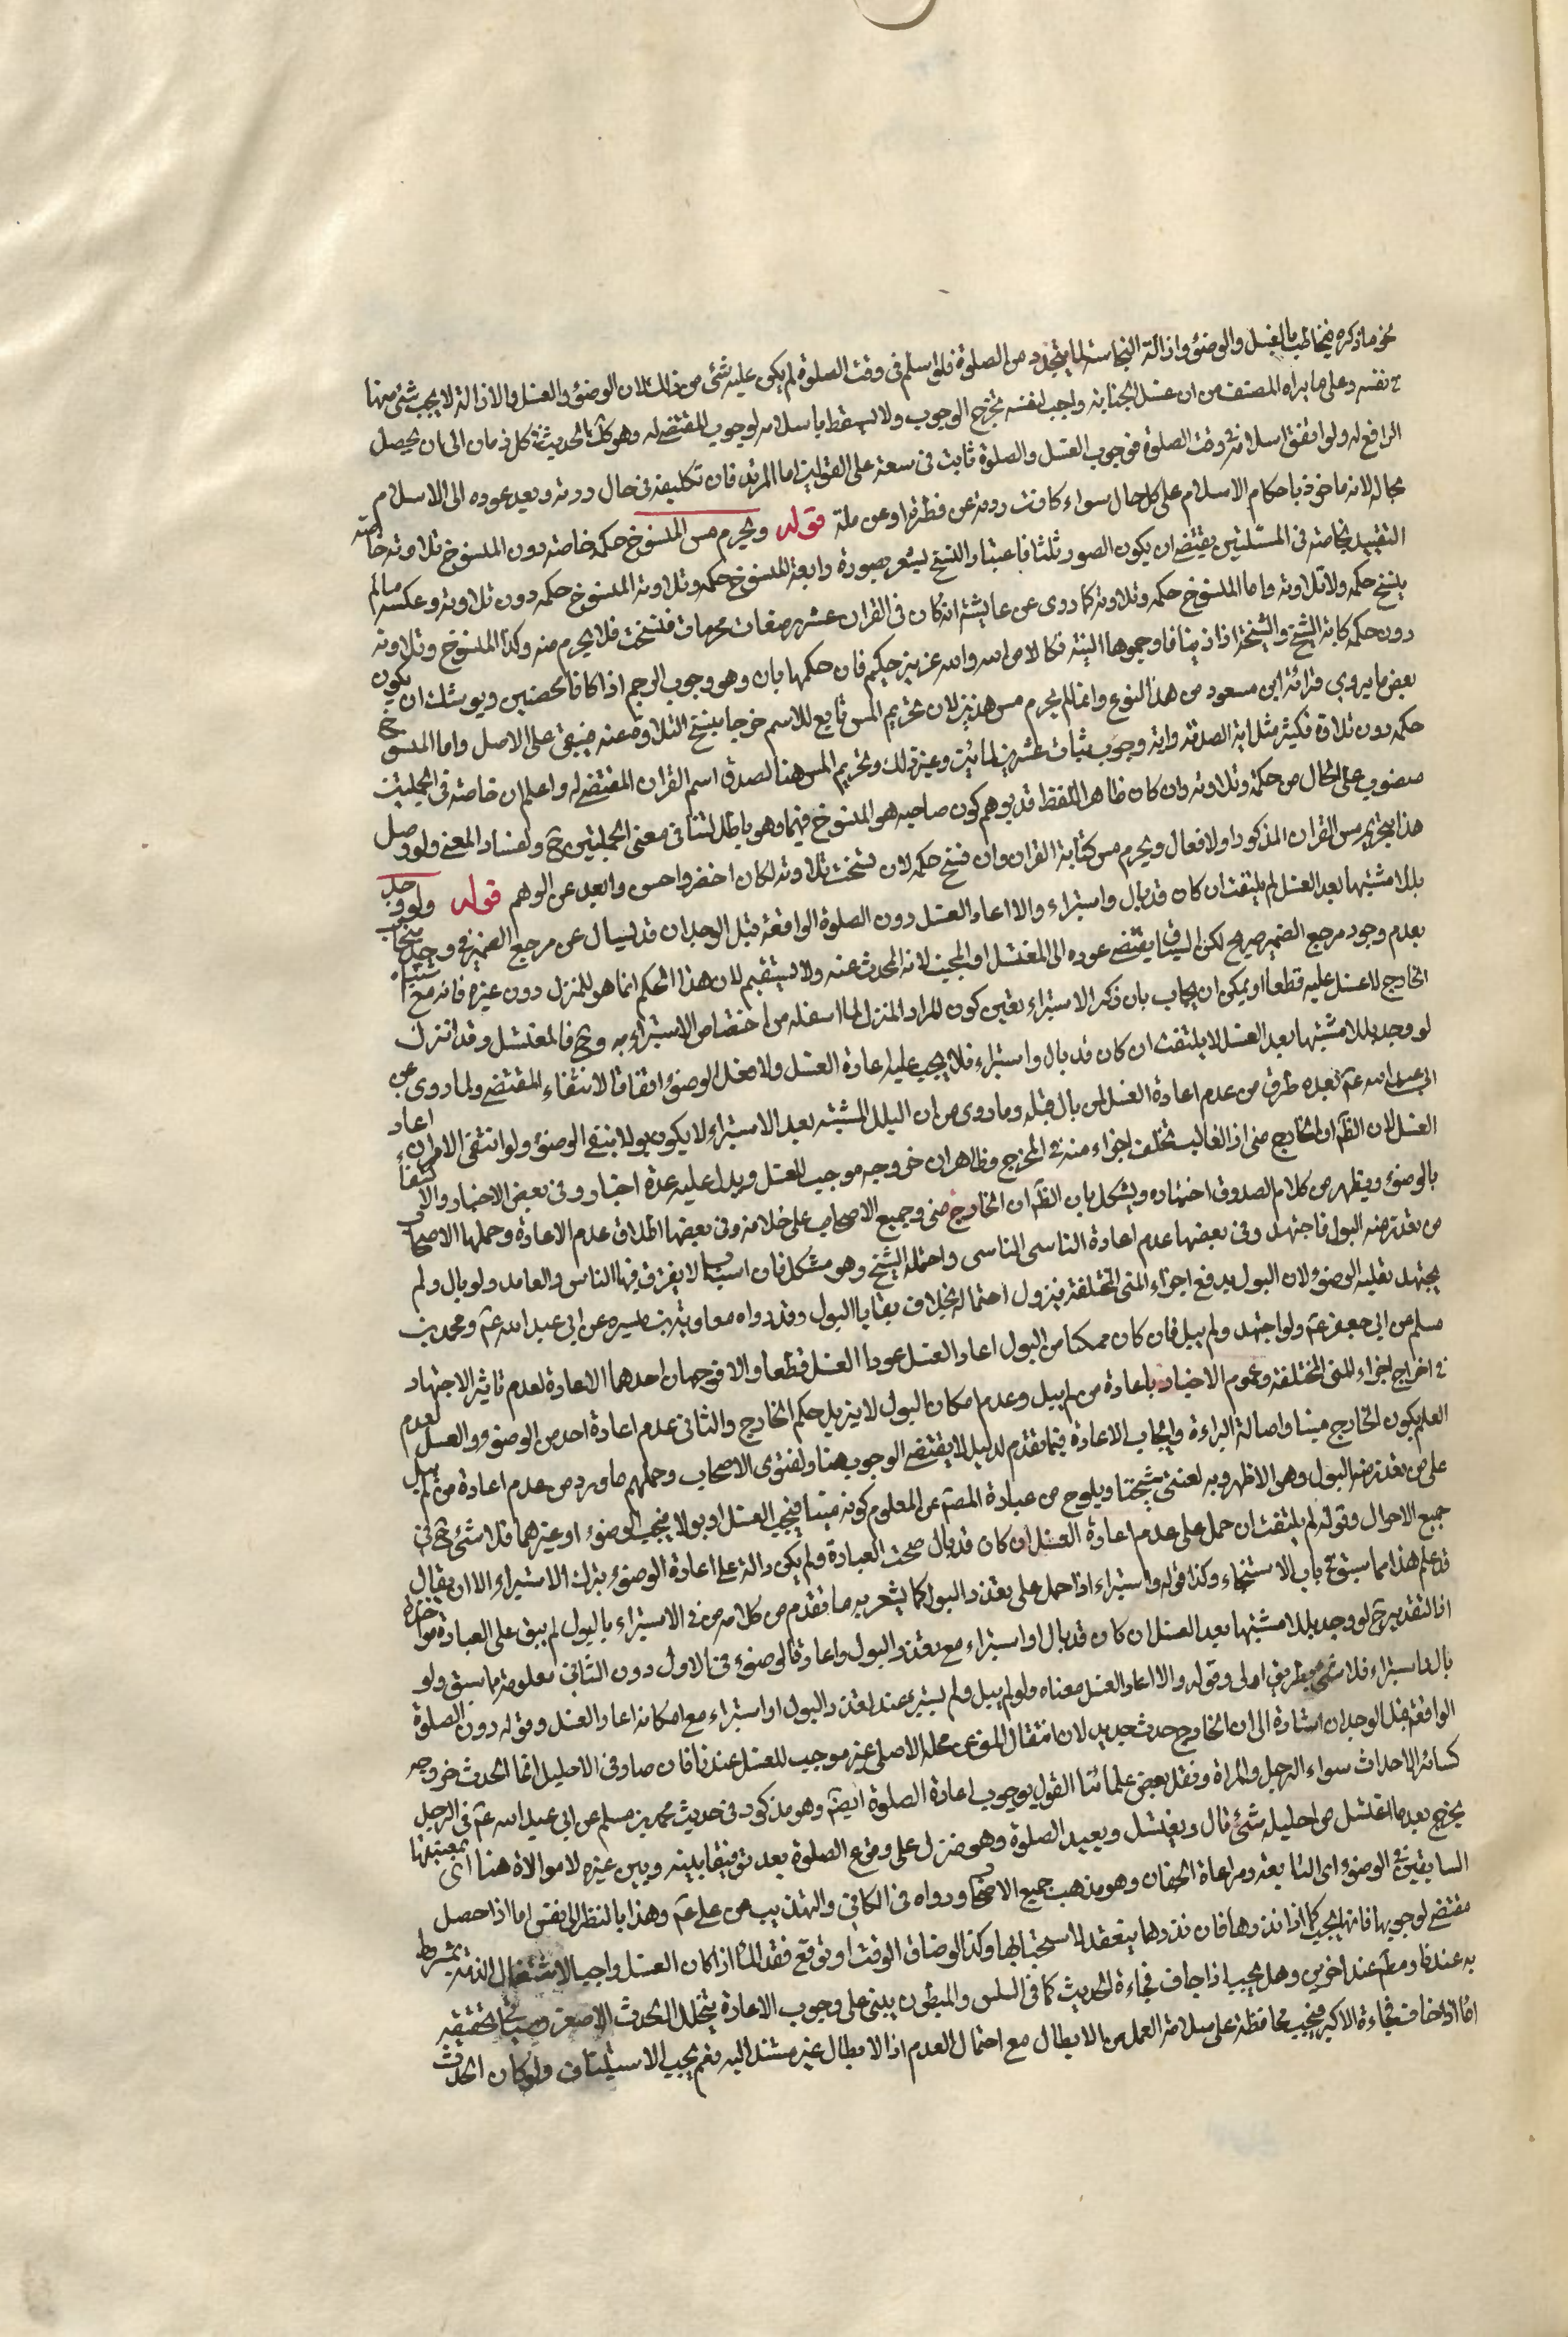 نحو ما ذكره فيخاطب بالغسل والوضوء وازالة النجاسة لما يتجدد من الصلوة فلو اسلم فى وقت الصلوة لم يكن عليه شئ من ذلك لان الوضوء والغسل والازالة لا يجب شئ منها
فى نفسه وعلى ما يراه المصنف من ان غسل الجنابة واجب لنفسه يتجه الوجوب ولا يسقط باسلامه لوجوب المقتضى له وهو كل الحديث فى كل زمان الى ان يحصل
الرافع له ولو اتفق اسلامه فى وقت الصلوة فوجوب الغسل والصلوة ثابت فى سعة على القولين اما المرتد فان تكليفه فى حال ردته وبعد عوده الى الاسلام
بحاله لانه ماخوذ باحكام الاسلام على كل حال سواء كانت ردته عن فطرة او عن ملة قوله ويحرم مس المنسوخ حكمه خاصة دون المنسوخ تلاوته خاصة
التقييد بخاصة فى المسئلتين يقتضى ان يكون الصور ثلثا فاعتبار النسخ يشعر بصورة رابعة المنسوخ حكمه وتلاوته المنسوخ حكمه دون تلاوته وعكسه ما لم
ينسخ حكمه ولا تلاوته واما المنسوخ حكمه وتلاوته كما روى عن عايشة انه كان فى القران عشر رضعات محرمات فنسخت فلا يحرم مسه وكذا المنسوخ وتلاوته
دون حكمه كاية الشيخ والشيخة اذا زنيا فارجموها البتة نكالا من الله والله عزيز حكيم فان حكمها باق وهو وجوب الرجم اذا كانا محصنين ويوشك ان يكون
بعض ما يروى قرائة ابن مسعود من هذا النوع وانما لم يحرم مس هذين لان تحريم المس تابع للاسم خرجا بنسخ التلاوة عنه فيبقى على الاصل واما المنسوخ
حكمه دون تلاوة فكثير مثل اية الصدقة واية وجوب ثبات عشرين لمائتين وغير ذلك وتحريم المس هنا لصدق اسم القران المقتضى له واعلم ان خاصة فى الجملتين
منصوب على الحال من حكمه وتلاوته وان كان ظاهر اللفظ قد يوهم كون صاحبه هو المنسوخ فيهما وهو باطل لتنافى معنى الجملتين ح ولفساد المعنى ولو وصل
هذا بتحريم مس القران المذكور اولا فقال ويحرم مس كتابة القران وان نسخ حكمه لان نسخت تلاوته لكان اخصر واحسن وابعد عن الوهم قوله ولو وجد
بللا مشتبها بعد الغسل لم يلتفت ان كان قد بال واستبراء والا اعاد الغسل دون الصلوة الواقعة قبل الوجدان قد يسال عن مرجع الضمير فى وجد
بعدم وجود مرجع الضمير صريح لكن السياق يقتضى عوده الى المغتسل او المجنب لانه المحدث عنه ولا يستقيم لان هذا الحكم انما هو للمنزل دون غيره فانه مع
الخارج لا غسل عليه قطعا ويمكن ان يجاب بان ذكر الاستبراء يعين كون المراد المنزل لما اسفله من اختصاص الاستبراء به وح فالمغتسل وقد انزل
لو وجد بللا مشتبها بعد الغسل لا يلتفت ان كان قد بال واستبراء فلا يجب عليه اعادة الغسل ولا فعل الوضوء اتفاقا لانتفاء المقتضى ولما روى عن
ابى عبد الله ع بعده طرق من عدم اعادة الغسل لمن بال قبله وما روى من ان البلل المشتبه بعد الاستبراء لا يكون بولا ينتفى الوضوء ولو انتفى الامران اعاد
الغسل لان الظ ان الخارج منى اذ الغالب تخلف اجزاء منه فى المخرج وظاهر ان خروجه موجب للغسل ويدل عليه عدة اخبار وفى بعض الاخبار الاكتفاء
بالوضوء ويظهر من كلام الصدوق اختياره ويشكل بان الظ ان الخارج منى وجميع الاصحاب على خلافه وفى بعضها اطلاق عدم الاعادة وحملها الاصحاب
من تعذر منه البول فاجتهد وفى بعضها عدم اعادة الناسى الناسى واحتمله الشيخ وهو مشكل فان اسباب لا يفرق فيها الناس والعامد ولو بال ولم
يجتهد فعليه الوضوء لان البول يدفع اجزاء المنى المتخلفة فيزول احتماله بخلاف بقايا البول وقد رواه معاوية بن ميسره عن ابى عبد الله ع ومحمد بن
مسلم عن ابى جعفر ع ولو اجتهد ولم يبل فان كان ممكنا من البول اعاد الغسل قطعا والا فوجهان احدهما الاعادة لعدم تاثير الاجتهاد
فى اخراج اجزاء المنى المختلفة وعموم الاخبار باعادة من لم يبل وعدم امكان البول لا يزيل حكم الخارج والثانى عدم اعادة احد من الوضوء والغسل لعدم
العلم بكون الخارج منيا واصالة البراءة وايجاب الاعادة فيما تقدم لدليل لا يقتضى الوجوب هنا ولفتوى الاصحاب وحملهم ما ورد من عدم اعادة من لم يبل
على من تعذر منه البول وهو الاظهر وبه نفتى شيخنا ويلوح من عبارة المصنف عن المعلوم كونه منيا فيجب الغسل او بولا فيجب الوضوء او غيرهما فلا شئ ح فى
جميع الاحوال وقوله لم يلتفت ان حمل على عدم اعادة الغسل ان كان قد بال صحت العبادة ولم يكن دالة على اعادة الوضوء بترك الاستبراء الا ان يقال
قد علم هذا مما سبق فى باب الاستنجاء وكذا قوله واستبراء اذا حمل على تعذر البول كما يشعر به ما تقدم من كلامه من الاستبراء بالبول لم يبق على العبادة مواخذة
اذ التقدير ح لو وجد بللا مشتبها بعد الغسل ان كان قد بال او استبراء مع تعذر البول واعادة الوضوء فى الاول دون الثانى معلومة مما سبق ولو
بال واستبراء فلا شئ بطريق اولى وقوله والا اعاد الغسل معناه ولو لم يبل ولم يستبرء عند تعذر البول او استبراء مع امكانه اعاد الغسل وقوله دون الصلوة
الواقعة قبل الوجدان اشارة الى ان الخارج حدث جديد لان انتقال المنى عن محله الاصلى غير موجب للغسل عندنا فان صار فى الاحليل انما الحدث خروجه
كسائر الاحداث سواء الرجل والمراة ونقل بعض علمائنا القول بوجوب اعادة الصلوة ايضا وهو مذكور فى حديث محمد بن مسلم عن ابى عبد الله ع فى الرجل
يخرج بعد ما اغتسل من احليله شئ قال ويغتسل ويعيد الصلوة وهو منزل على وقوع الصلوة بعد توفيقا بينه وبين غيره لا موالاة هنا
السابقين فى الوضوء اى المتابعة ومراعاة الجفاف وهو مذهب جميع الاصحاب ورواه فى الكافى والتهذيب عن على ع وهذا بالنظر الى نفس اما اذا حصل
مقتضى لوجوبها فانها تجب كما اذا نذرها فان نذرها ينعقد لاستحبابها وكذا لو ضاق الوقت او توقع فقد الماء اذا كان الغسل واجبا لاشتغال الذمة بمشروط
به عندنا ومطلقا عند اخرين وهل يجب اذا خاف فجاءة الحديث كما فى السلس والمبطون يبنى على وجوب الاعادة بتخلل الحدث الاصغر وسياتى تحقيقه
اما اذا خاف فجاءة الاكبر فيجب محافظة على سلامة العمل من الابطال مع احتمال العدم اذ الابطال غير مستند اليه نعم يجب الاستيناف ولو كان الحدث